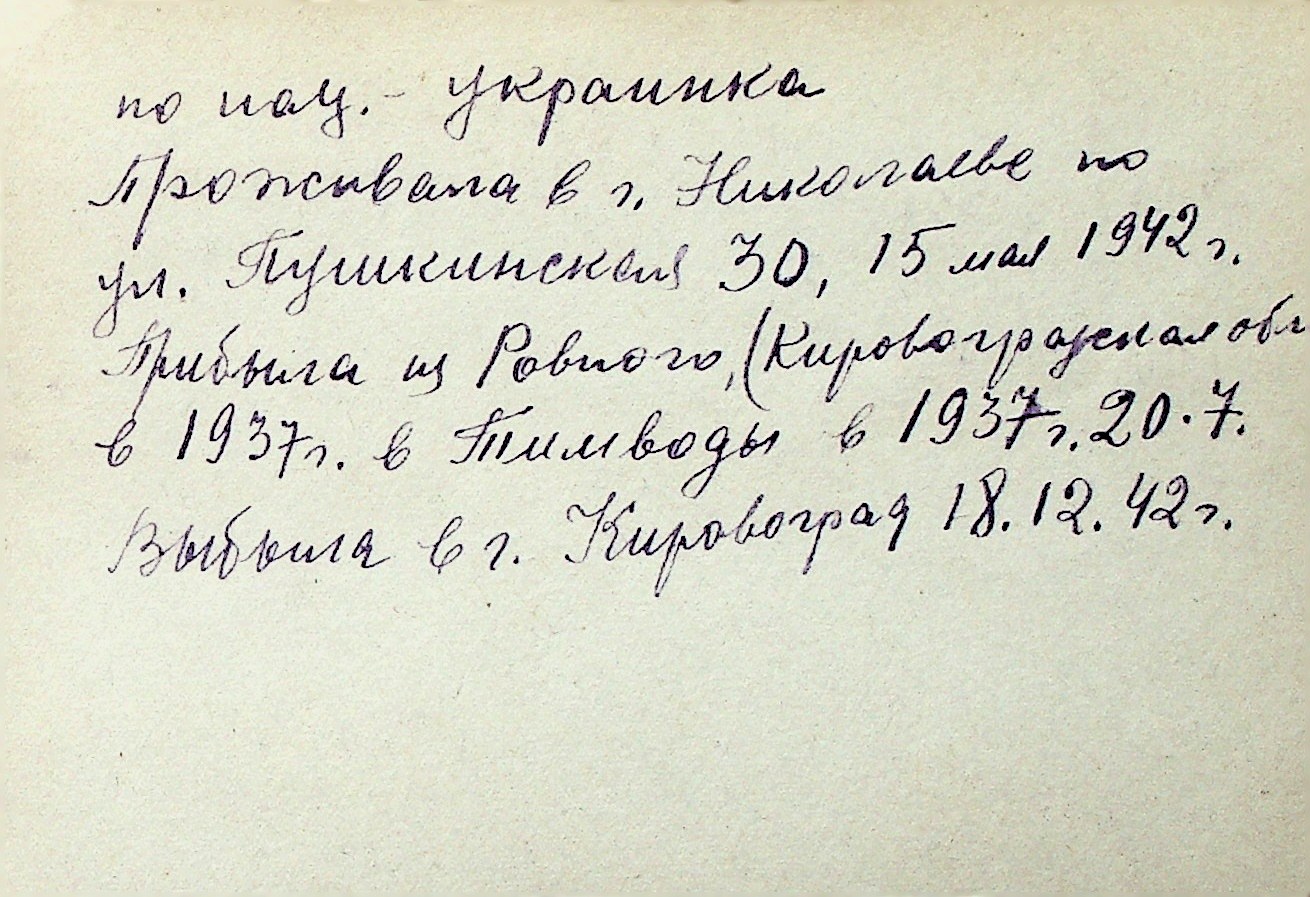 по нац. - украинка
Проживала в г. Николаеве по
ул. Пушкинская 30, 15 мая 1942 г.
Прибыла из Ровного, (Кировоградская обл
в 1937 г. в Тимводы в 1937 г. 20.7.
Выбыла в г. Кировоград 18.12.42 г.